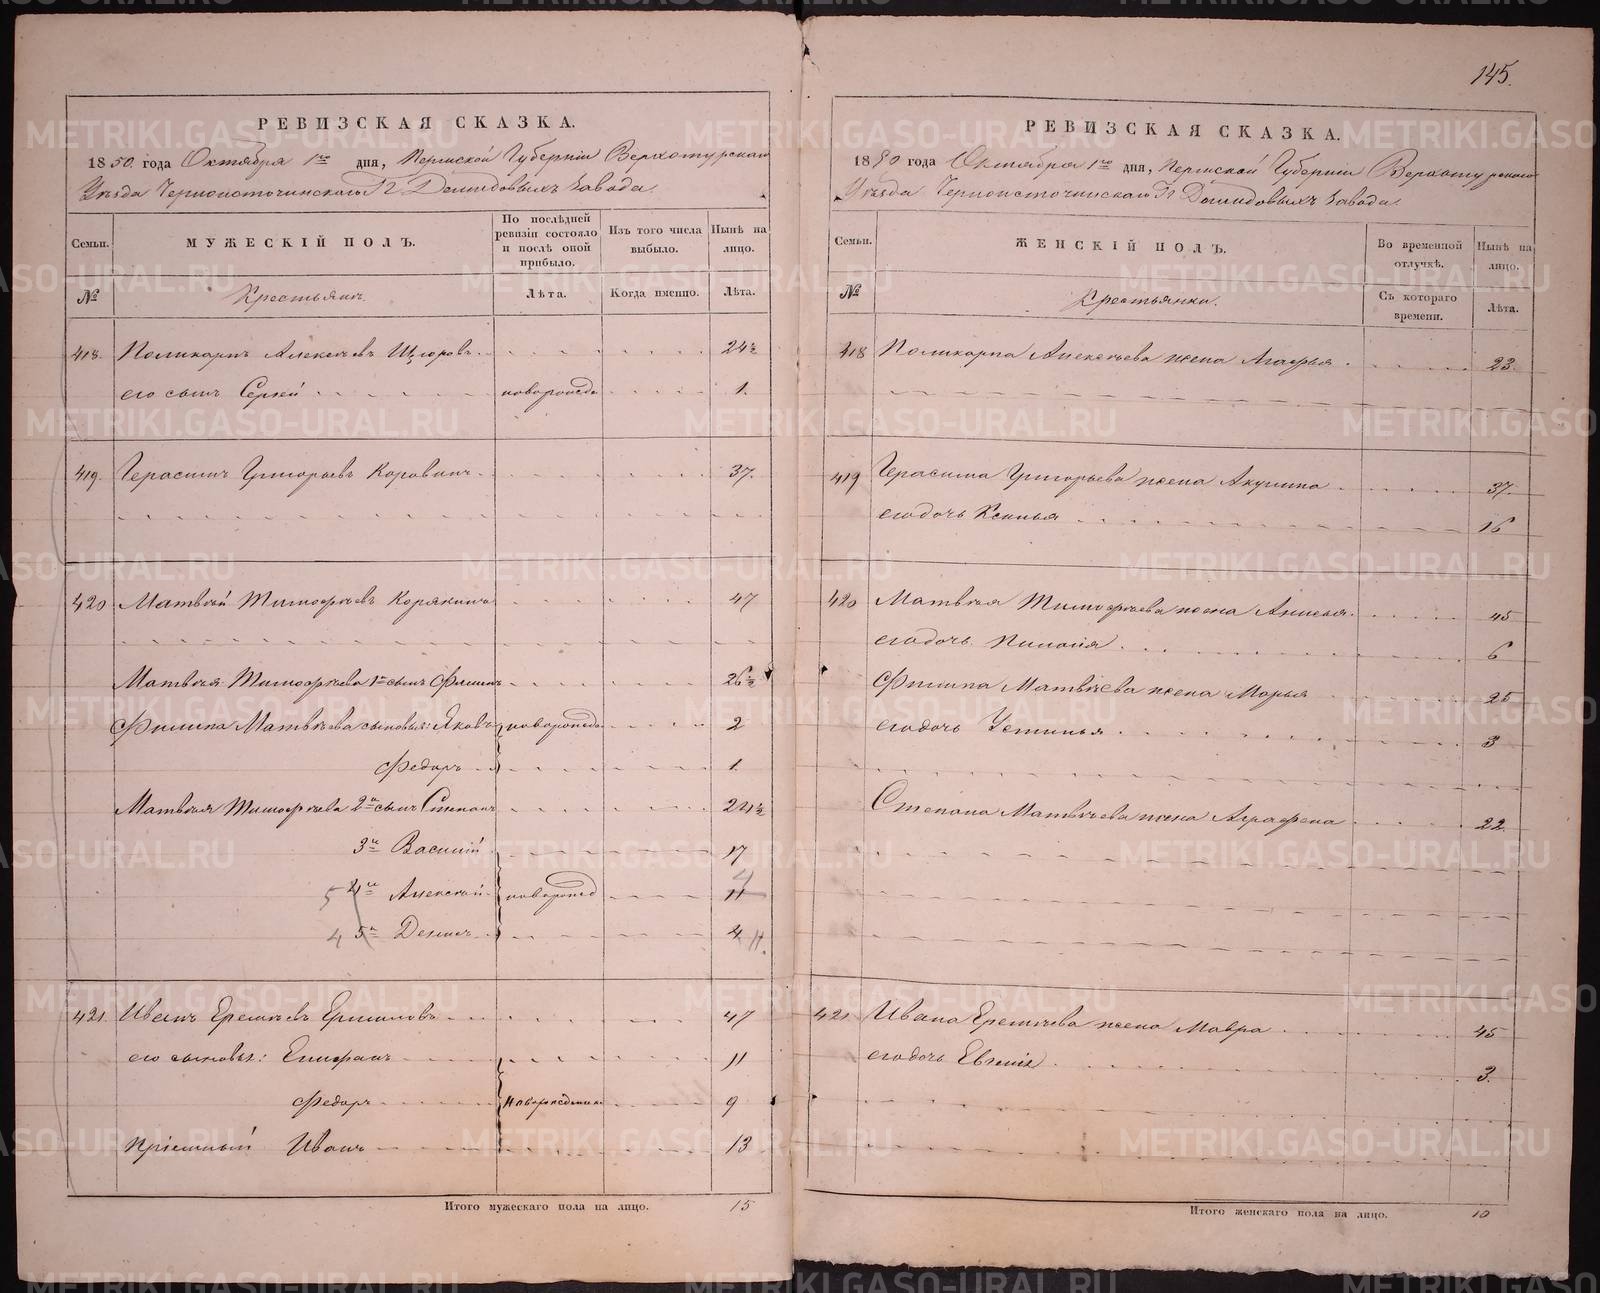 145.
РЕВИЗСКАЯ СКАЗКА.
1850. года Октября 1го дня, Пермской Губерніи Верхотурскаго
Уѣзда Черноисточинскаго Гг. Демидовыхъ Завода
Семьи. МУЖЕСКІЙ ПОЛЪ. По послѣдней ревизіи состояло и послѣ оной прибыло. Изъ того числа выбыло. Нынѣ на лицо.
№ Крестьянъ. Лѣта. Когда именно. Лѣта.
418. Поликарпъ Алексѣевъ 24½
его сынъ Сергей новорожде 1.
419. Герасимъ Григорьевъ Коровинъ 37.
420 Матвѣй Тимофѣевъ Корякинъ 47
Матвѣя Тимофѣева 1й сынъ Филипъ 26½
Филипа Матвѣева сыновья: Яковъ новорожде 2
Федоръ 1.
Матвѣя Тимофѣева 2й сынъ Степанъ 24½
3й Василій 17
5 4й Алексѣй новорожд 11 4
4 5й Денисъ 4 11.
421. Иванъ Еремѣевъ Ермиловъ 47
его сыновья: Епифанъ 11
Федоръ новорожденные 9
Пріемный Иванъ 13
Итого мужескаго пола на лицо. 15
РЕВИЗСКАЯ СКАЗКА.
1850 года Октября 1го дня, Пермской Губерніи Верхотурскаго
Уѣзда Черноисточинскаго Гг Демидовыхъ Завода
Семьи. ЖЕНСКІЙ ПОЛЪ. Во временной отлучкѣ. Нынѣ на лицо.
№ Крестьянки. Съ котораго времени. Лѣта.
418 Поликарпа Алексѣева жена Агафья 23.
419 Герасима Григорьева жена Акулина 37.
его дочь Ксенья 16
420 Матвѣя Тимофѣева жена Анисья 45
его дочь 6
Филипа Матвѣева жена Марья 25
его дочь Устинья 3
Степана Матвѣева жена Аграфена 22.
421 Ивана Еремѣева жена Мавра 45
его дочь Евгенія 3.
Итого женскаго пола на лицо. 10
METRIKI.GASO-URAL.RU